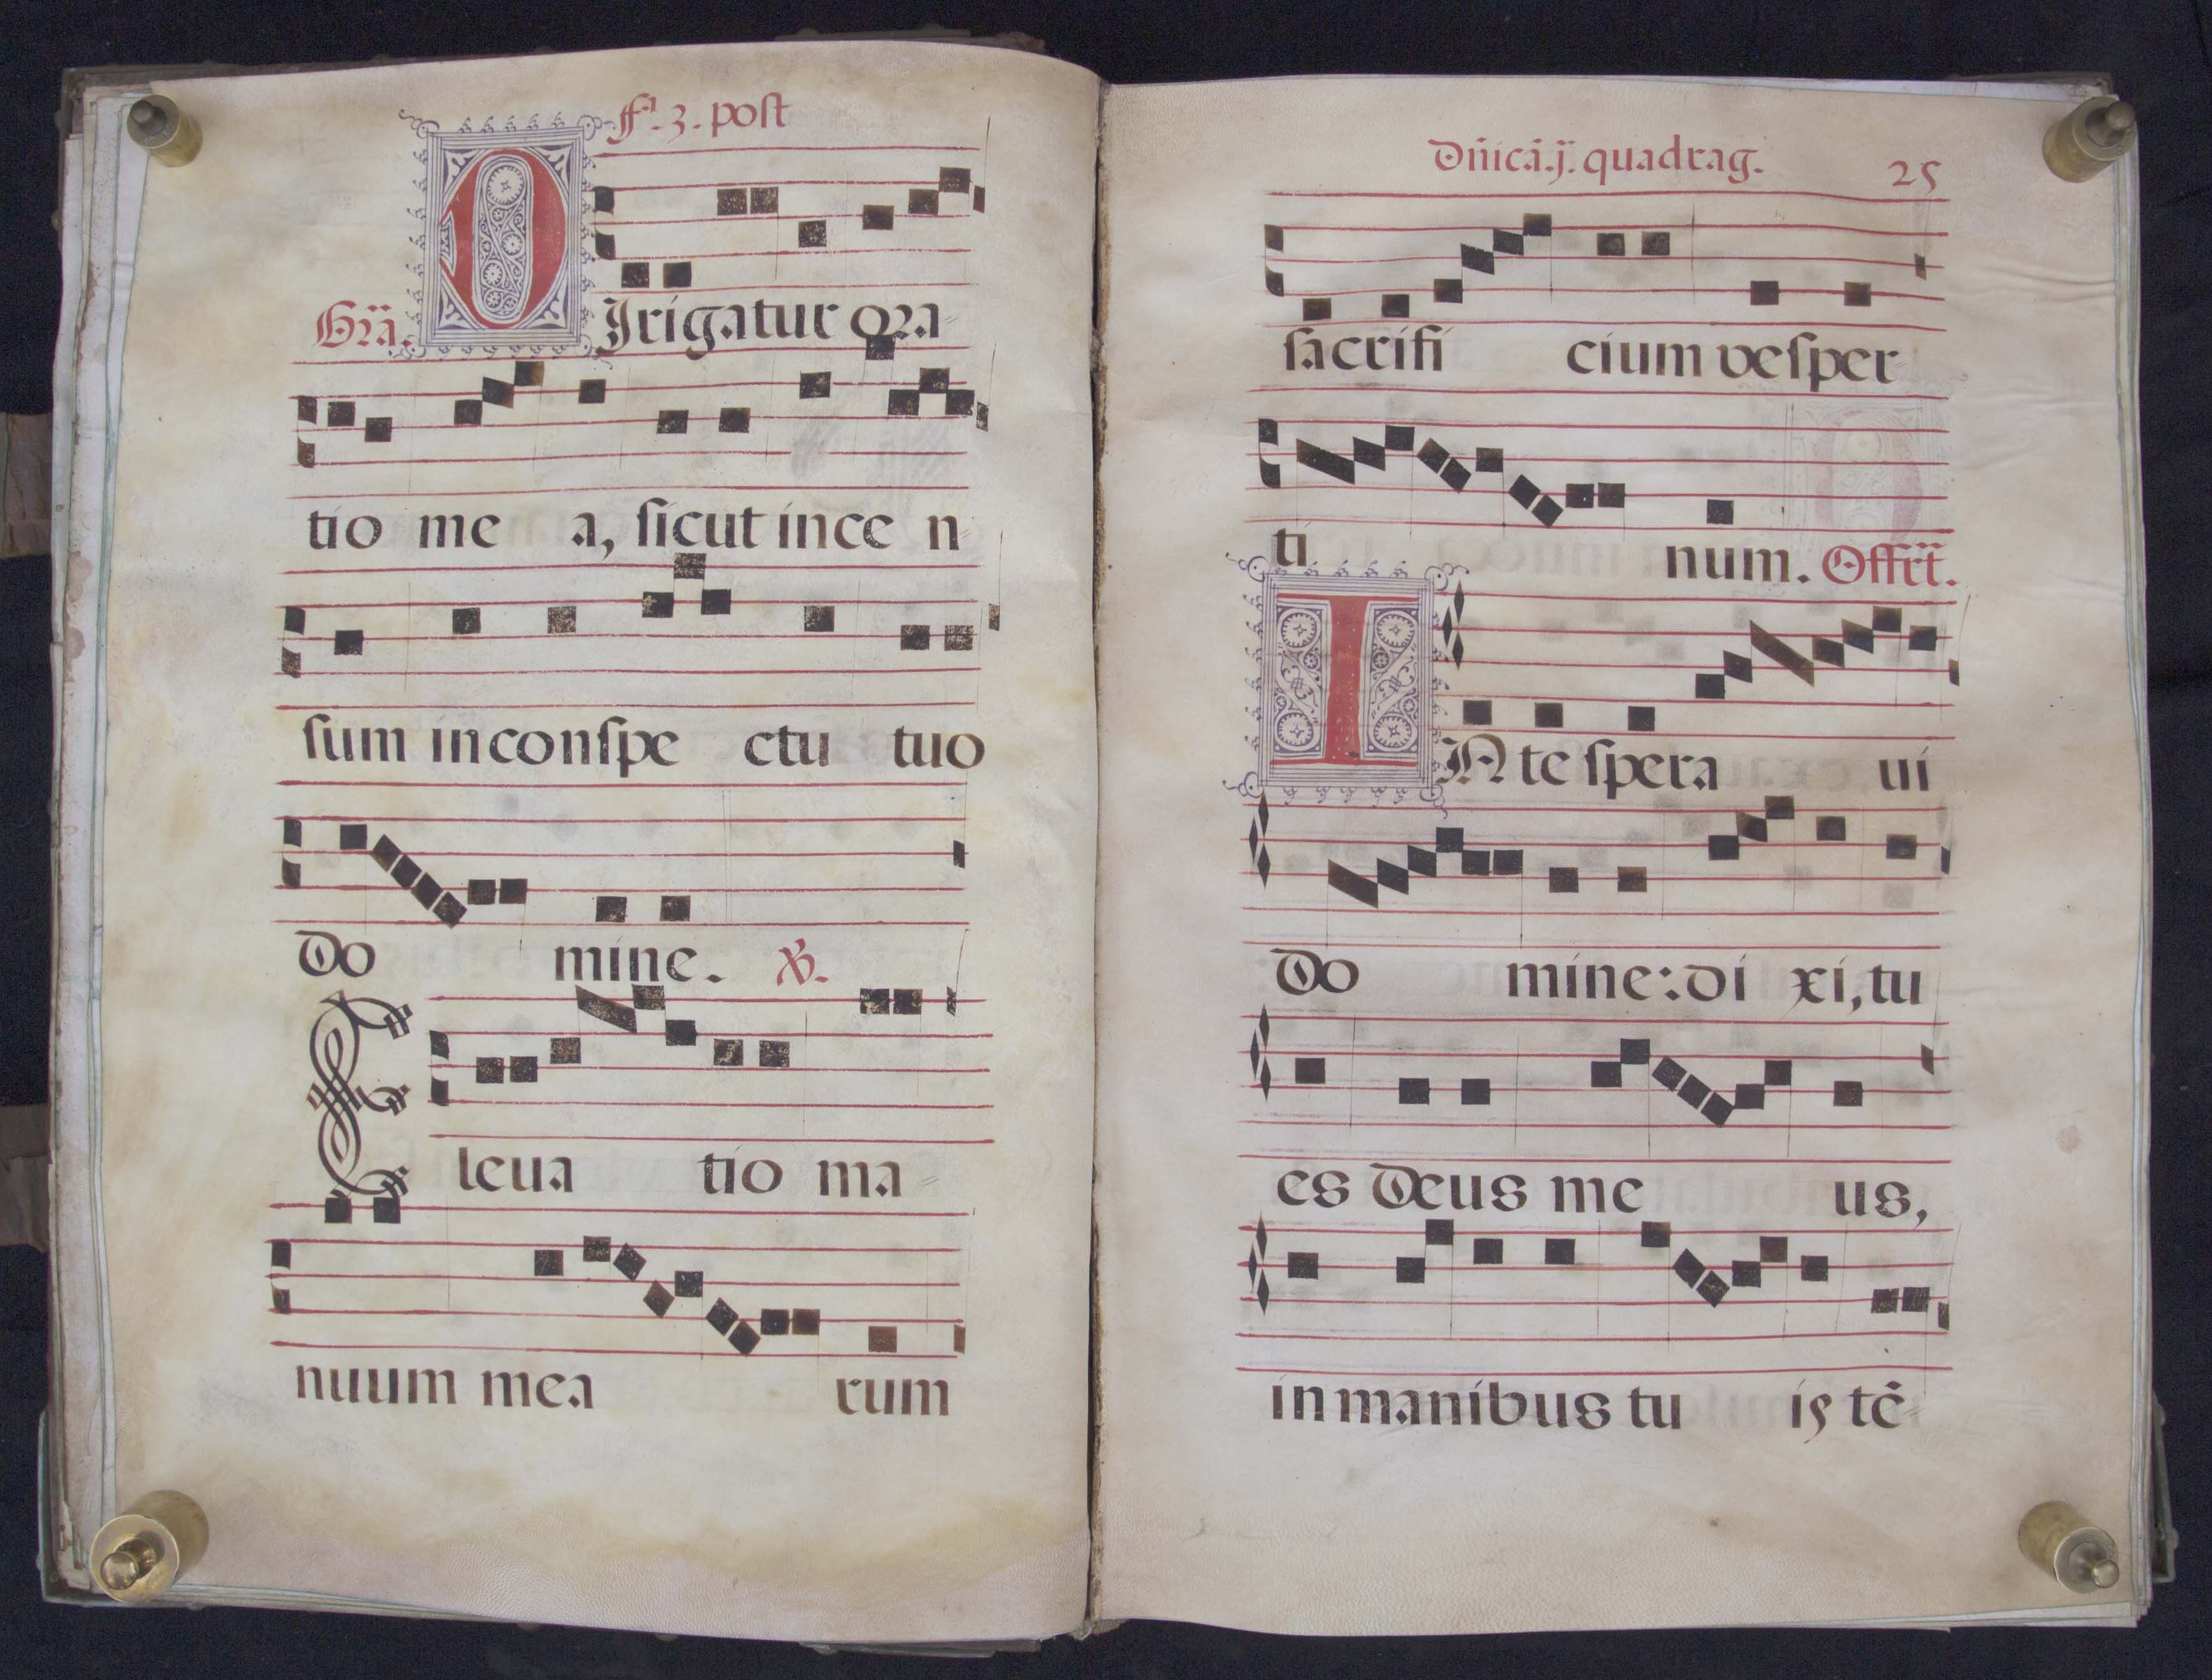 fª. 3. post
Gr̃a. DIrigatur ora-
tio me a, sicut in ce n
sum in conspe ctu tuo
Do mine. ℣.
Eleua tio ma-
nuum mea rum
Dñicâ. j. quadrag. 25
sacrifi cium vesper-
ti num. Offr̃t.
IN te spera ui
Do mine: di xi, tu
es Deus me us,
in manibus tu is tẽ-